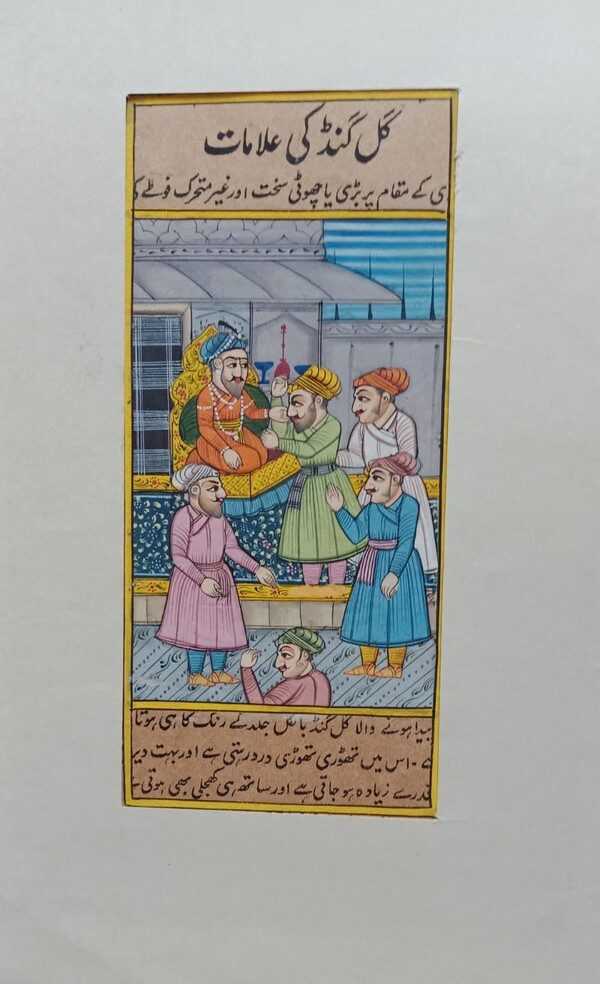 گل گنڈ کی علامات
ی کے مقام پر بڑی یا چھوٹی سخت اور غیر متحرک
پیدا ہونے والا گل گنڈ بالکل جلد کے رنگ کا ہی ہوتا
ہے ۔ اس میں تھوڑی تھوڑی درد رہتی ہے اور بہت دیر
قدرے زیادہ ہو جاتی ہے اور ساتھ ہی کھجلی بھی ہوتی